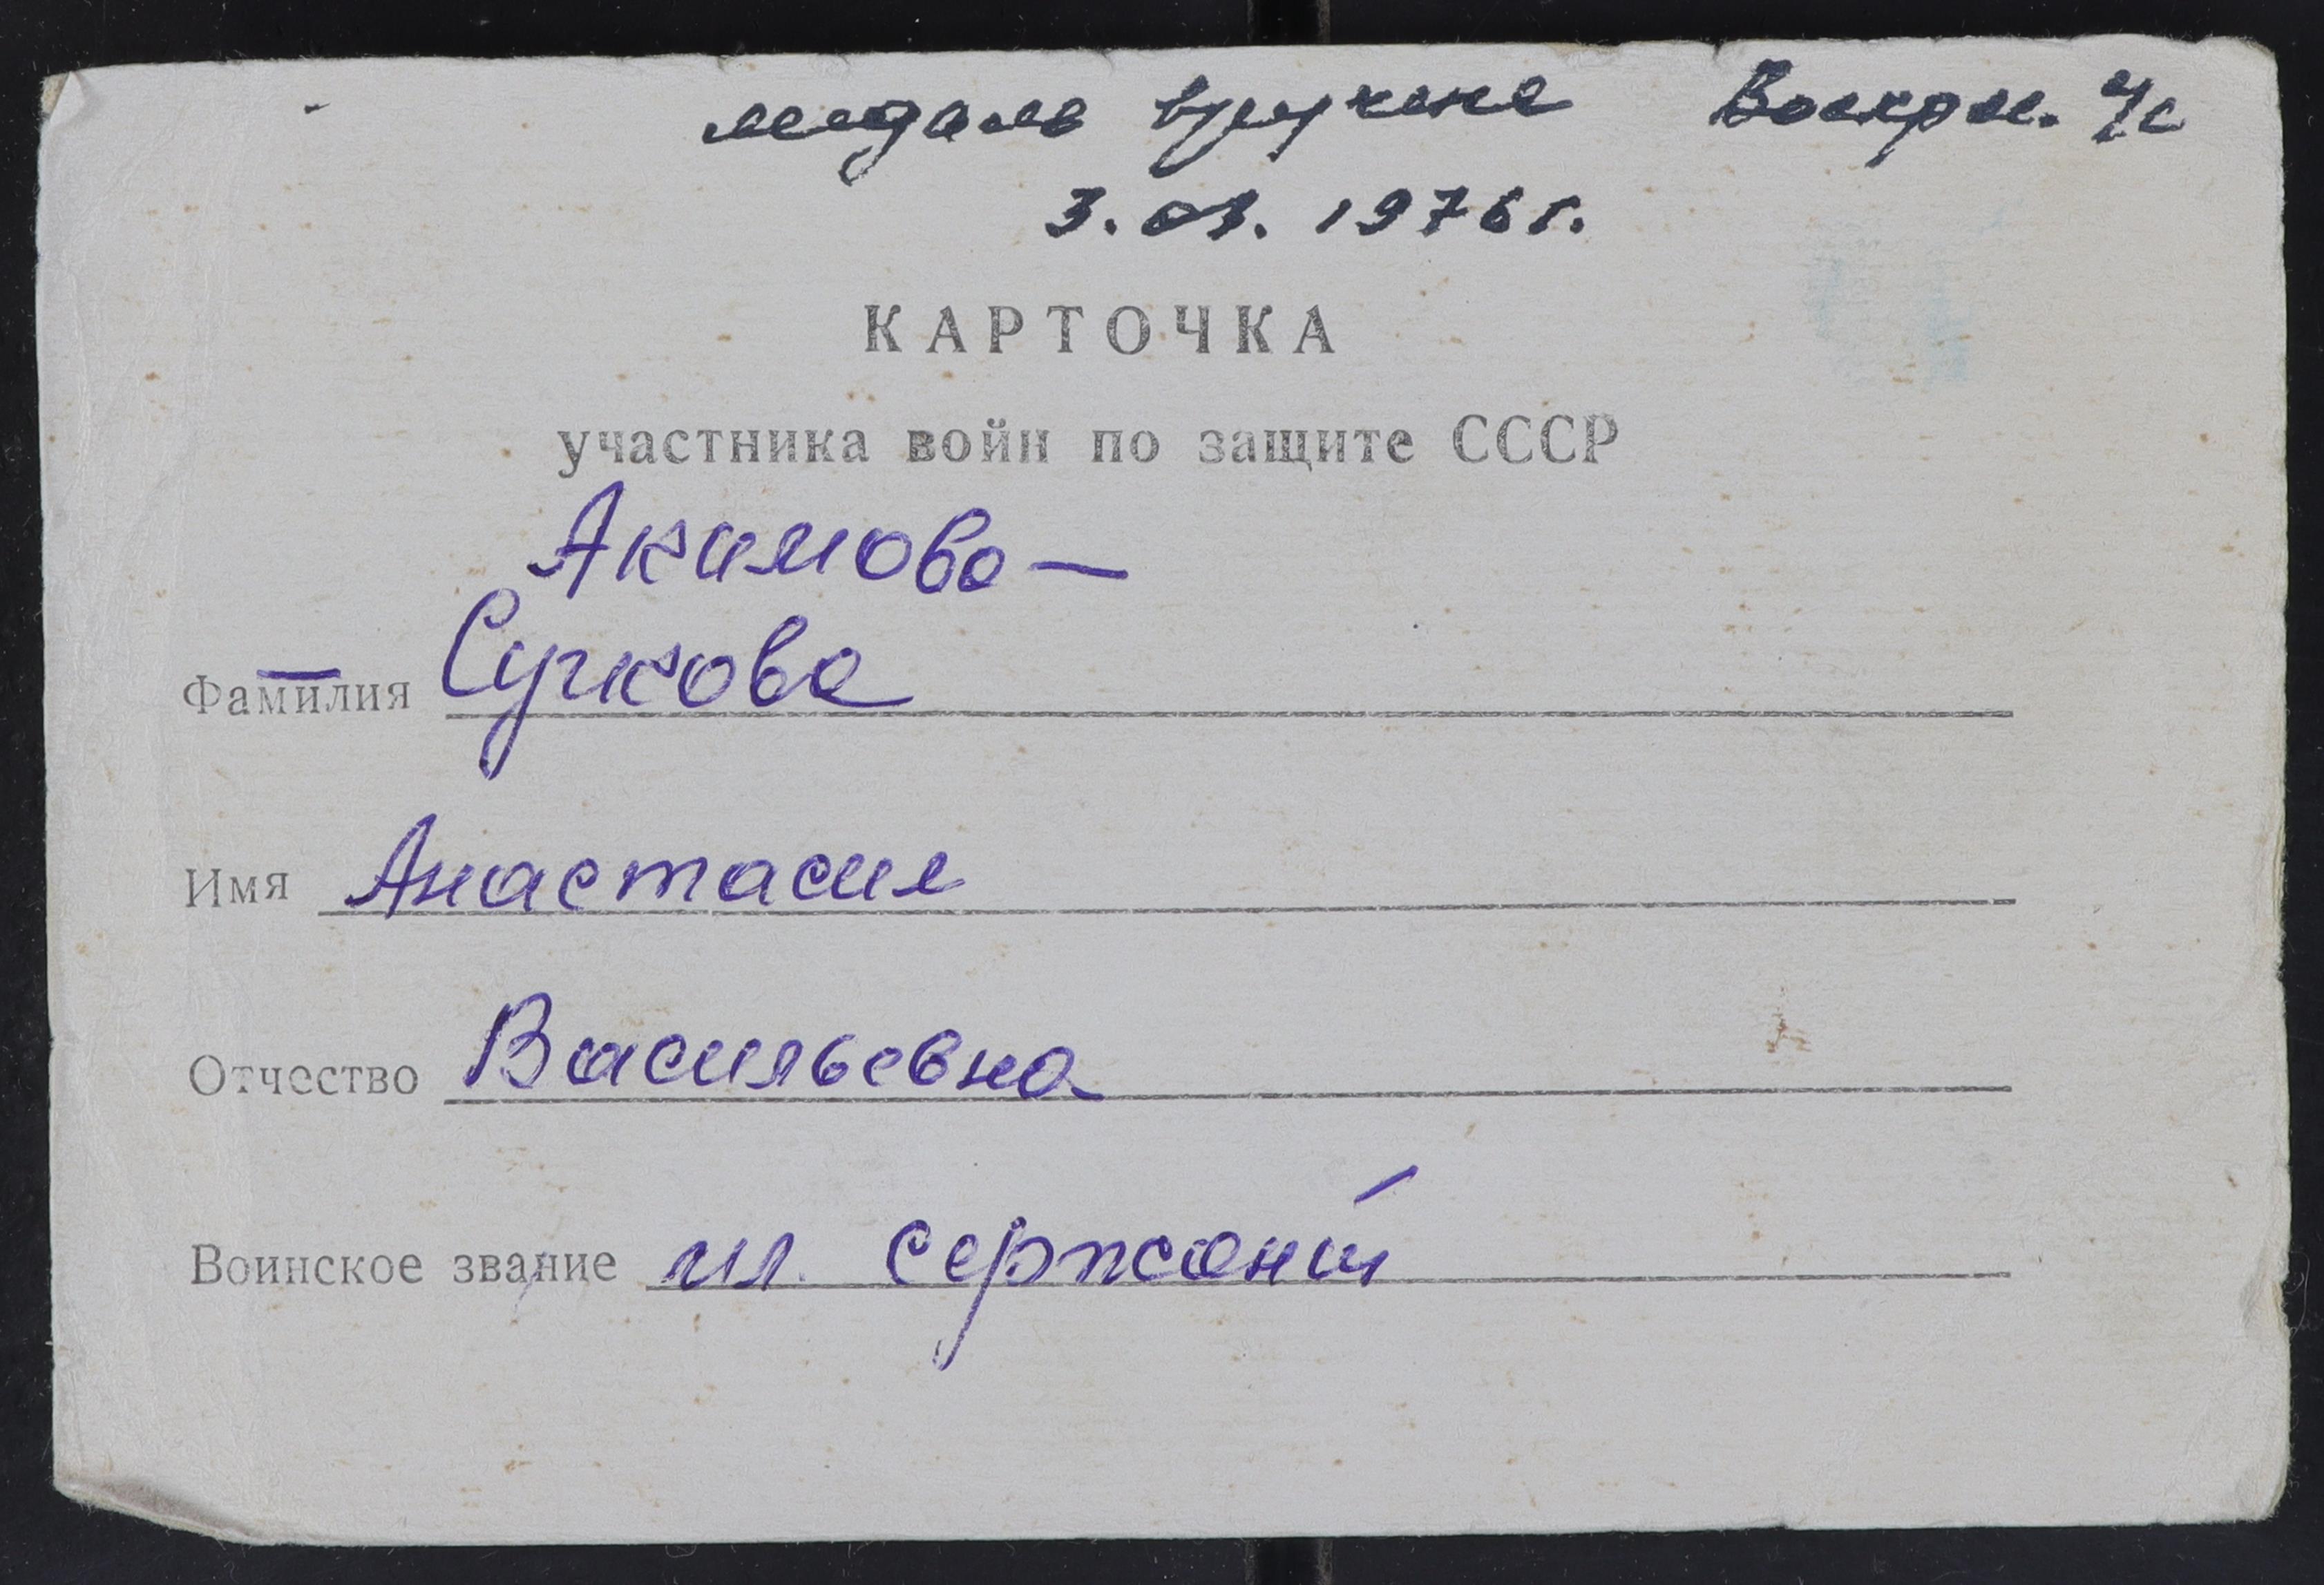 медаль вручена Воскрес. ч/с
3.03.1976г.
КАРТОЧКА
участника войн по защите СССР
Акимова —
Фамилия Сучкова
Имя Анастасия
Отчество Васильевна
Воинское звание мл. сержант